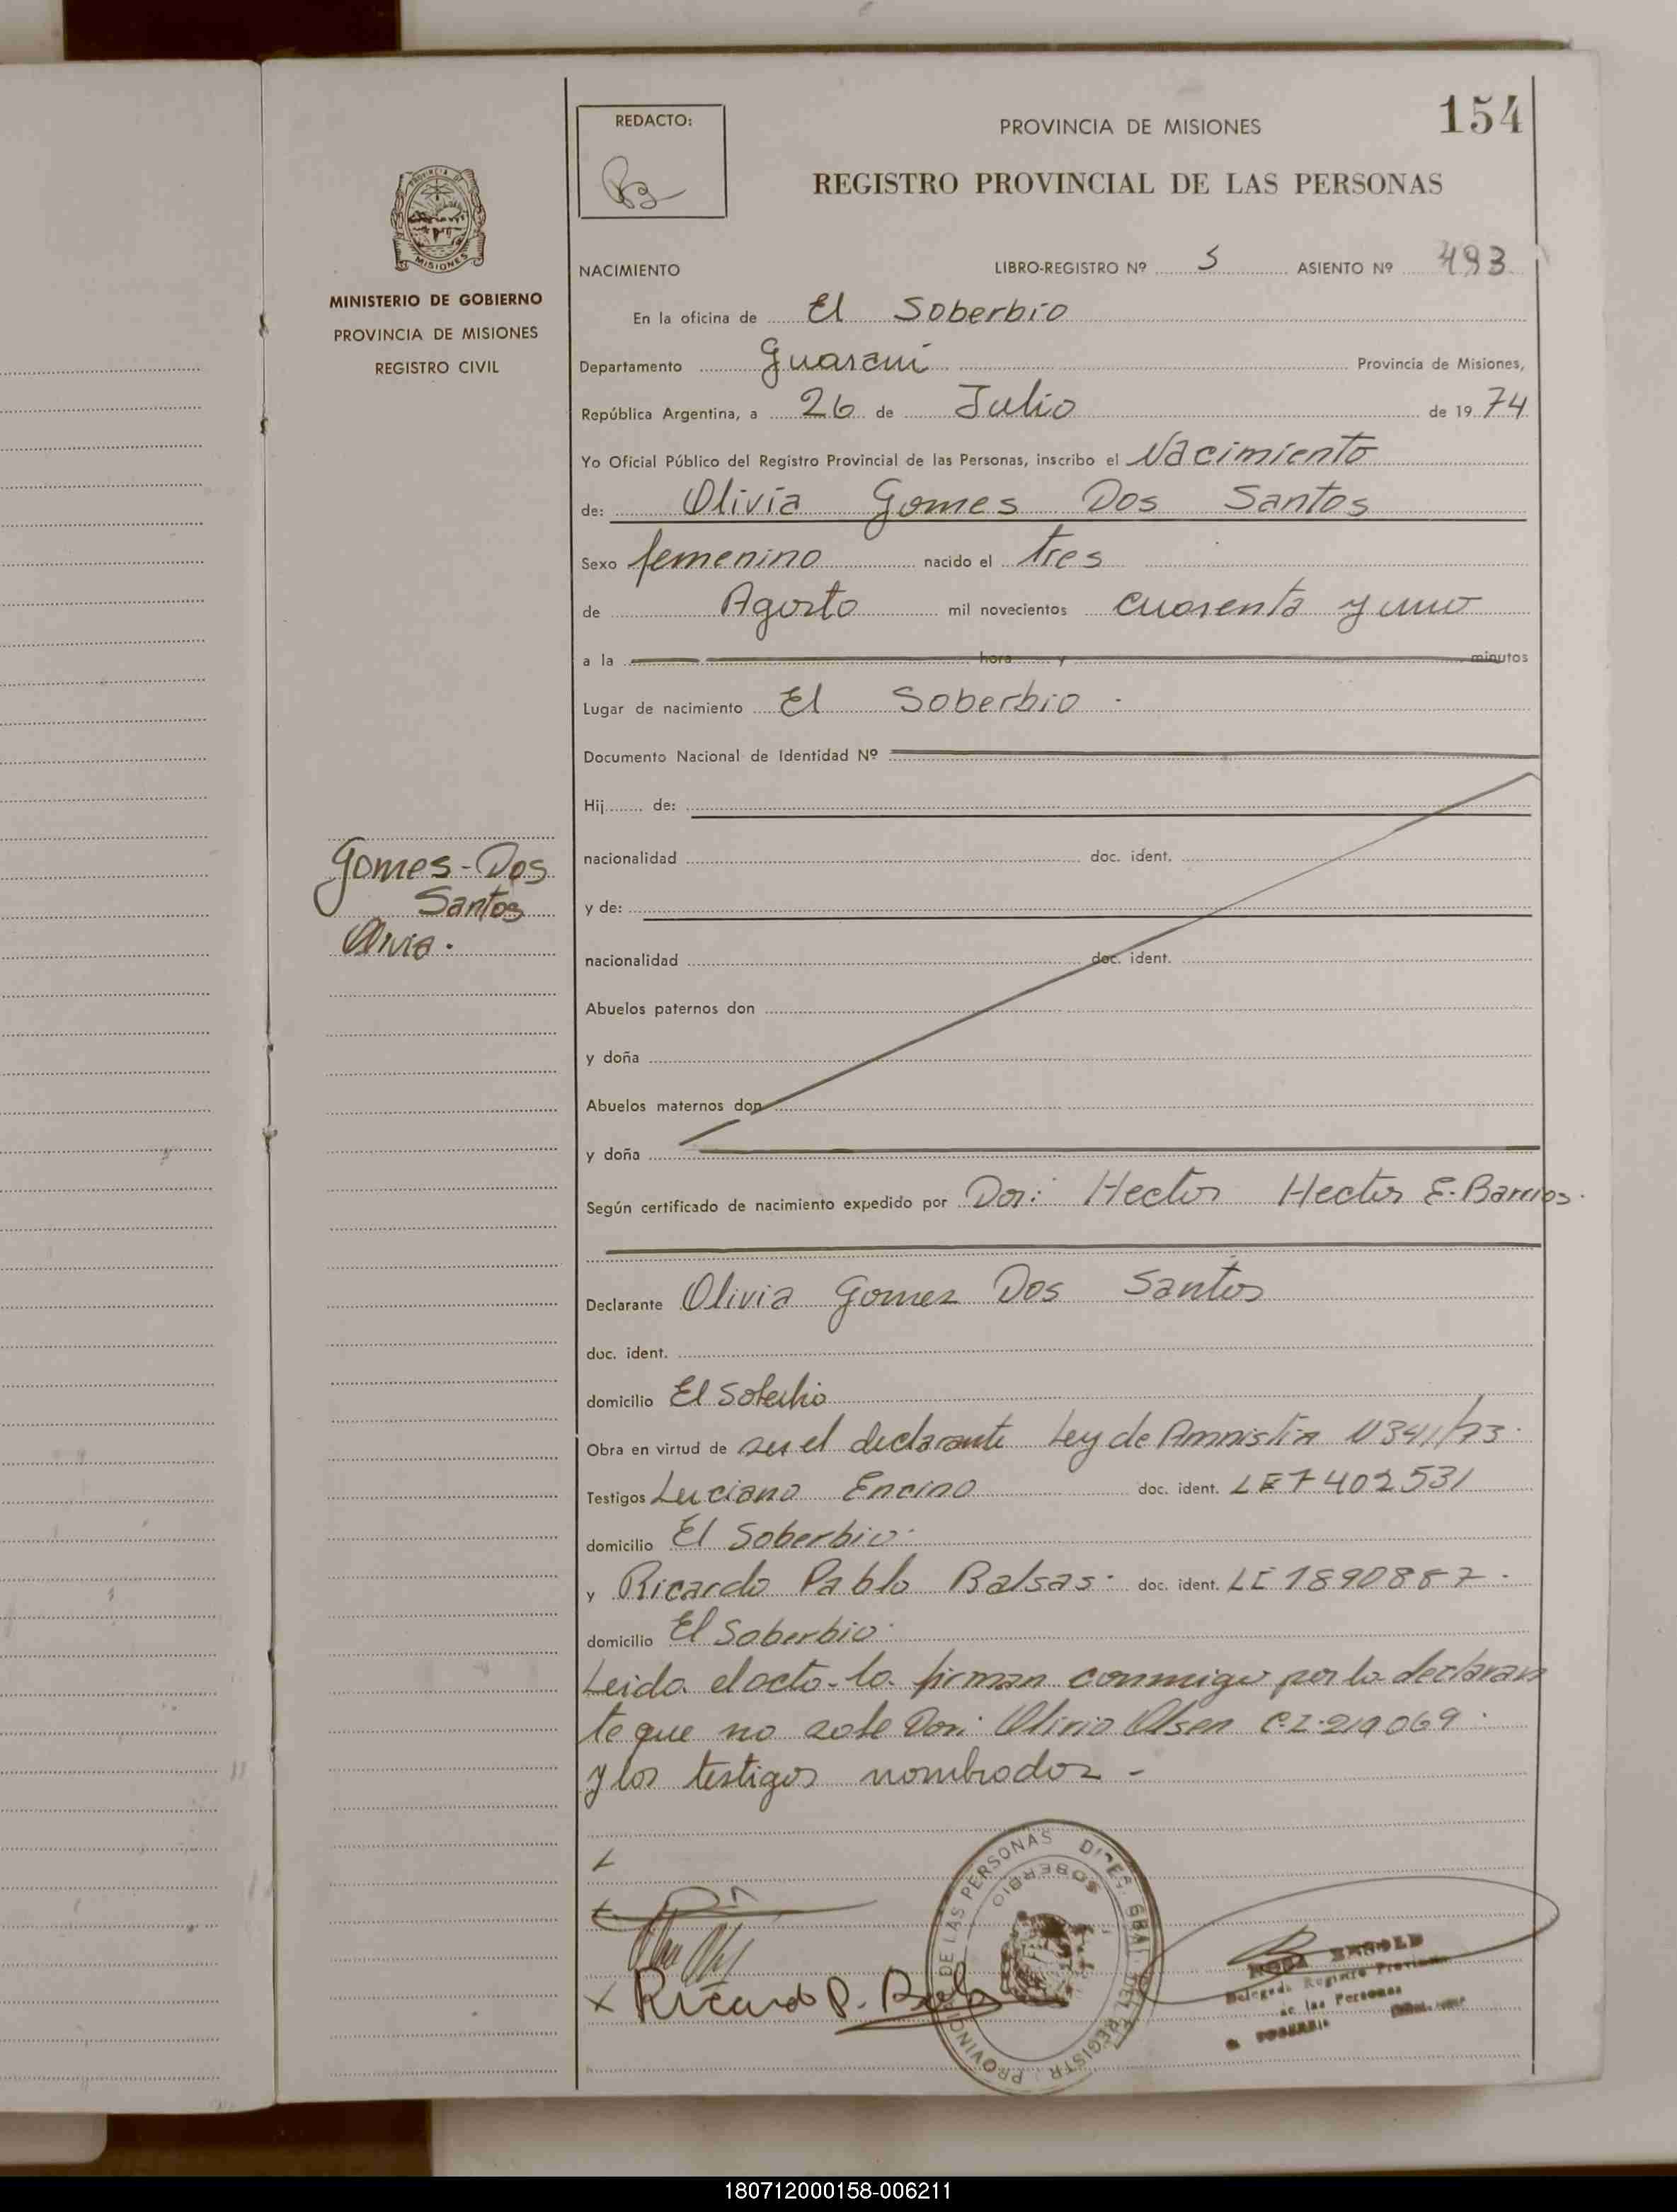 154
REDACTO:
PROVINCIA DE MISIONES
REGISTRO PROVINCIAL DE LAS PERSONAS
MISIONES
MINISTERIO DE GOBIERNO
PROVINCIA DE MISIONES
REGISTRO CIVIL
NACIMIENTO LIBRO-REGISTRO Nº 5 ASIENTO Nº 493
En la oficina de El Soberbio
Departamento Guarani Provincia de Misiones,
República Argentina, a 26 de Julio de 1974
Yo Oficial Público del Registro Provincial de las Personas, inscribo el Nacimiento
de: Olivia Gomes Dos Santos
Sexo femenino nacido el tres
de Agosto mil novecientos cuarenta y uno
a la hora y minutos
Lugar de nacimiento El Soberbio
Documento Nacional de Identidad Nº
Hij de:
nacionalidad doc. ident.
Gomes-Dos
Santos
Olivia.
y de:
nacionalidad doc. ident.
Abuelos paternos don
y doña
Abuelos maternos don
y doña
Según certificado de nacimiento expedido por Don: Hector Hector E. Barrios.
Declarante Olivia Gomez Dos Santos
doc. ident.
domicilio El Soberbio
Obra en virtud de ser el declarante Ley de Amnistia N 341/73.
Testigos Luciano Encino doc. ident. LE 7402531
domicilio El Soberbio.
y Ricardo Pablo Balsas. doc. ident. LE 1890887.
domicilio El Soberbio.
Leida el acto la firman conmigo por la declaran
te que no sabe Don: Olinio Olsen C.I. 219069
y los testigos nombrados -
Ricardo P.
PERSONAS
SOBERBIO
Delegada Registro Provincial
de las Personas
180712000158-006211